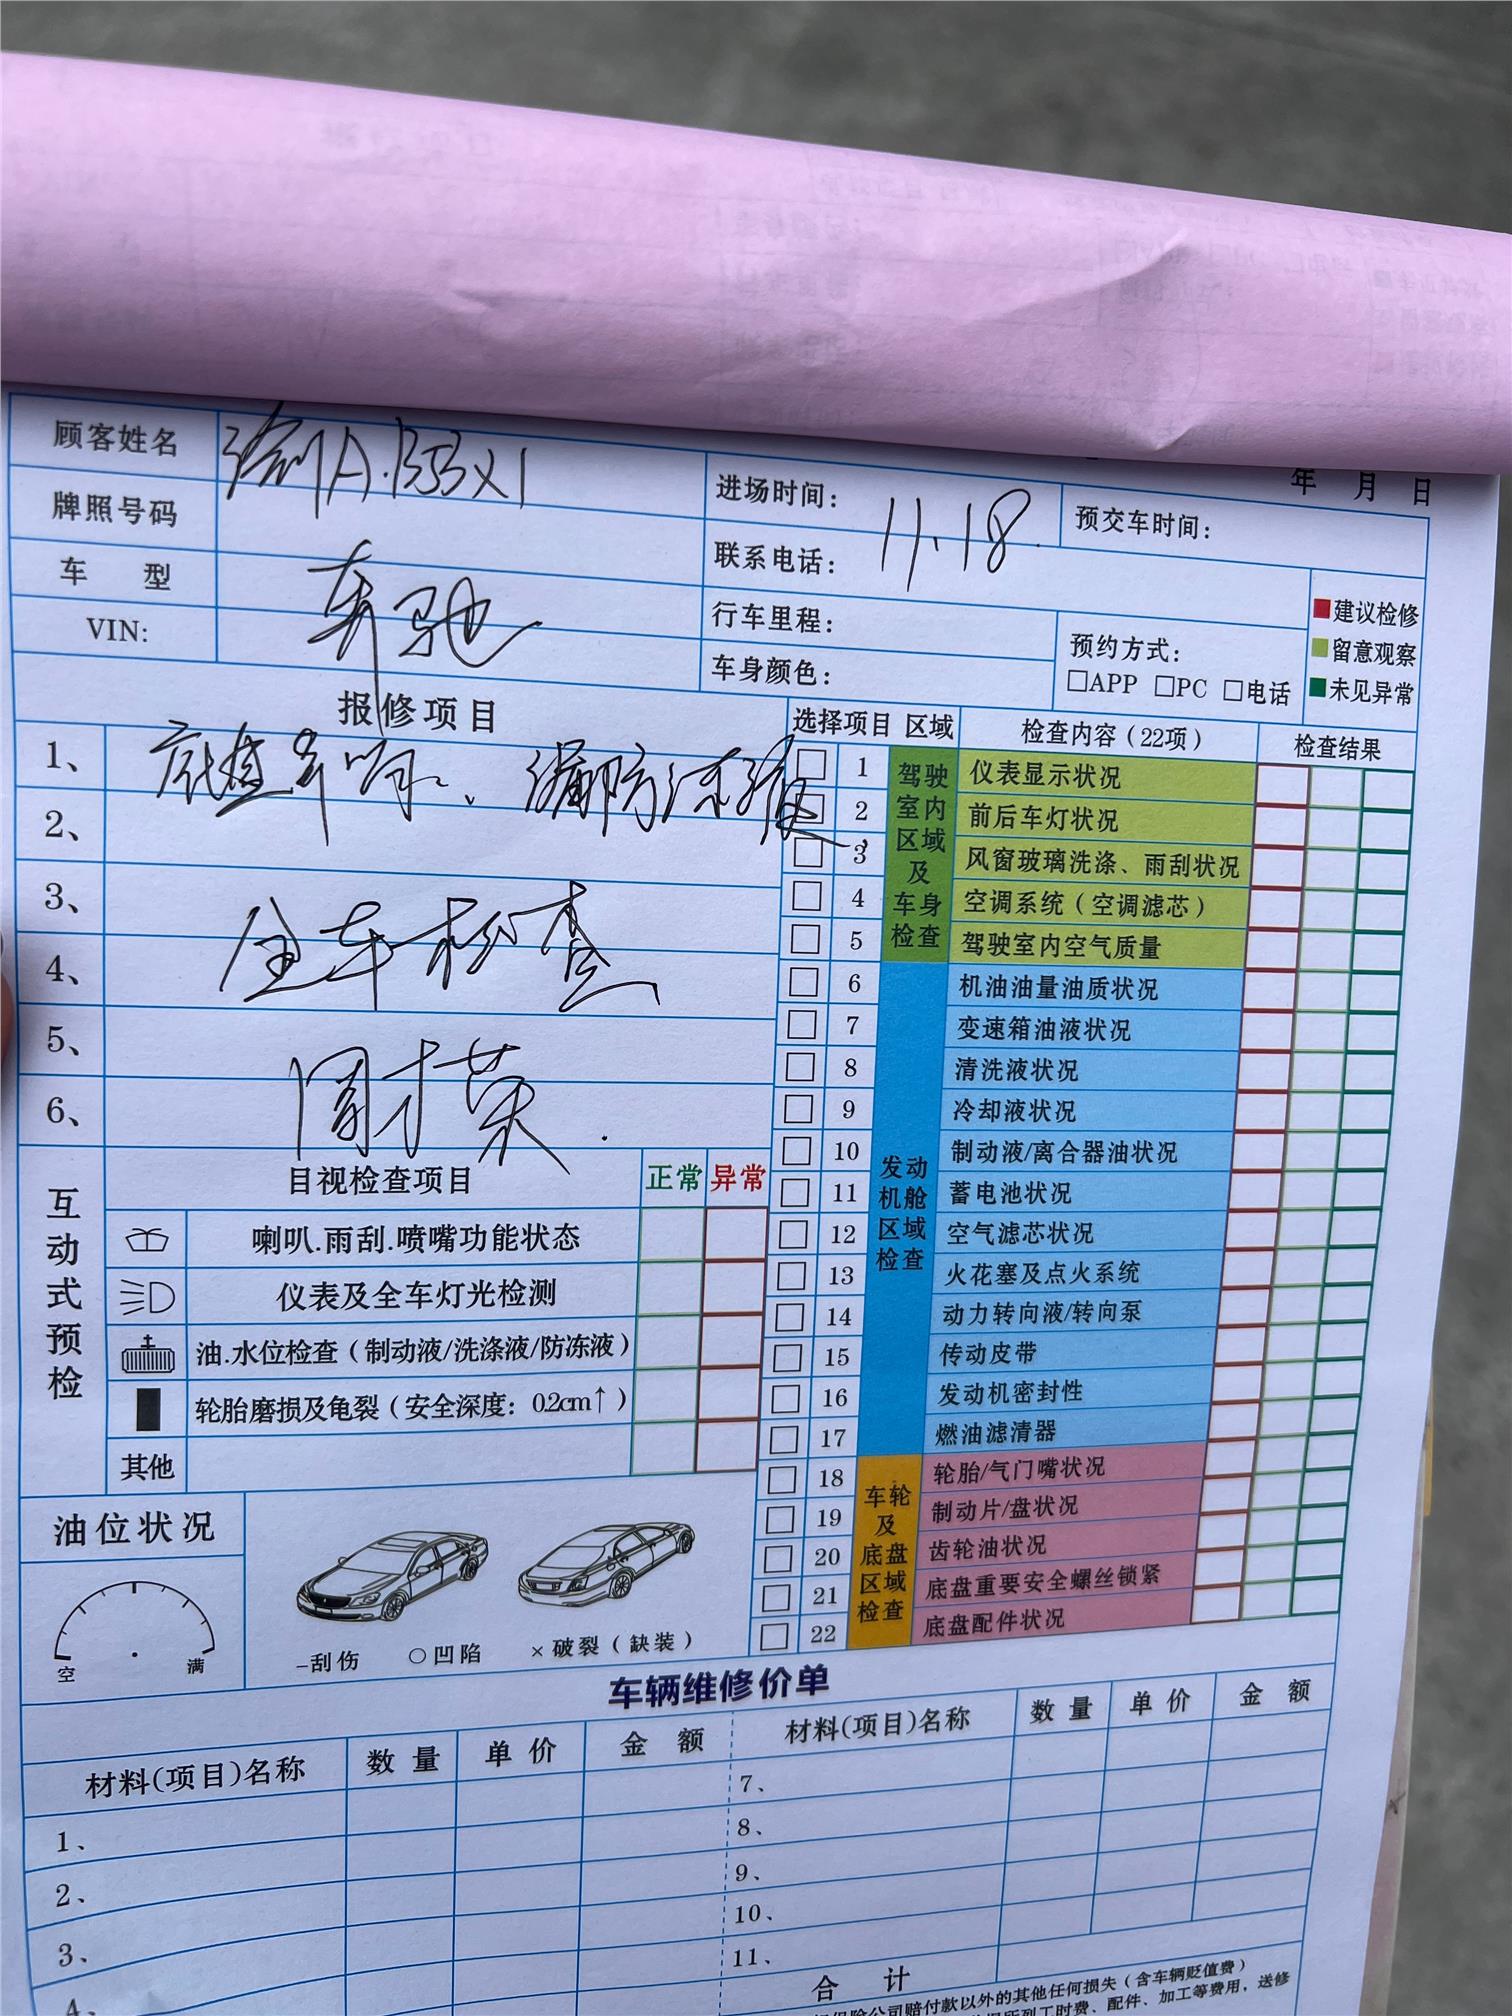 年 月 日
顾客姓名
渝A.BJBX1
牌照号码
进场时间: 11.18
预交车时间:
联系电话:
车 型
奔驰
VIN:
行车里程:
车身颜色:
预约方式:
□APP □PC □电话
建议检修
留意观察
未见异常
报修项目
1、
底盘异响、漏防冻液、
2、
3、
全车检查
4、
5、
周才荣.
6、
选择项目 区域 检查内容(22项) 检查结果
驾驶室内区域及车身检查
1 仪表显示状况
2 前后车灯状况
3 风窗玻璃洗涤、雨刮状况
4 空调系统(空调滤芯)
5 驾驶室内空气质量
发动机舱区域检查
6 机油油量油质状况
7 变速箱油液状况
8 清洗液状况
9 冷却液状况
10 制动液/离合器油状况
11 蓄电池状况
12 空气滤芯状况
13 火花塞及点火系统
14 动力转向液/转向泵
15 传动皮带
16 发动机密封性
17 燃油滤清器
车轮及底盘区域检查
18 轮胎/气门嘴状况
19 制动片/盘状况
20 齿轮油状况
21 底盘重要安全螺丝锁紧
22 底盘配件状况
互动式预检
目视检查项目 正常 异常
喇叭.雨刮.喷嘴功能状态
仪表及全车灯光检测
油.水位检查(制动液/洗涤液/防冻液)
轮胎磨损及龟裂(安全深度: 0.2cm↑)
其他
油位状况
空 满
–刮伤 ○凹陷 ×破裂(缺装)
车辆维修价单
材料(项目)名称 数量 单价 金额 材料(项目)名称 数量 单价 金额
1、
2、
3、
4、
7、
8、
9、
10、
11、
合 计
保险公司赔付款以外的其他任何损失(含车辆贬值费)
到工时费、配件、加工等费用,送修